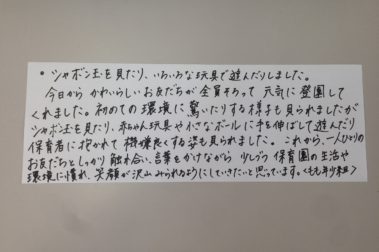 ・シャボン玉を見たり、いろいろな玩具で遊んだりしました。
今日から かわいらしいお友だちが 全員そろって 元気に 登園して
くれました。初めての環境に驚いたりする様子も見られましたが
シャボン玉を見たり、赤ちゃん玩具や小さなボールに手を伸ばして遊んだり
保育者に抱かれて 機嫌良くする姿も見られました。これから、一人ひとりの
お友だちとしっかり 触れ合い、言葉をかけながら 少しづつ 保育園の生活や
環境に慣れ、笑顔が沢山みられるようにしていきたいと思っています。<もも年少組>